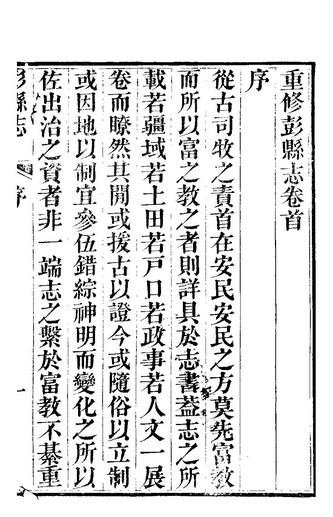 重修彭縣志卷首
序
從古司牧之責首在安民安民之方莫先富教
而所以富之教之者則詳具於志書葢志之所
載若疆域若土田若戸口若政事若人文一展
卷而瞭然其閒或援古以證今或隨俗以立制
或因地以制宜參伍錯綜神明而變化之所以
佐出治之資者非一端志之繫於富教不綦重
彭縣志
序
一